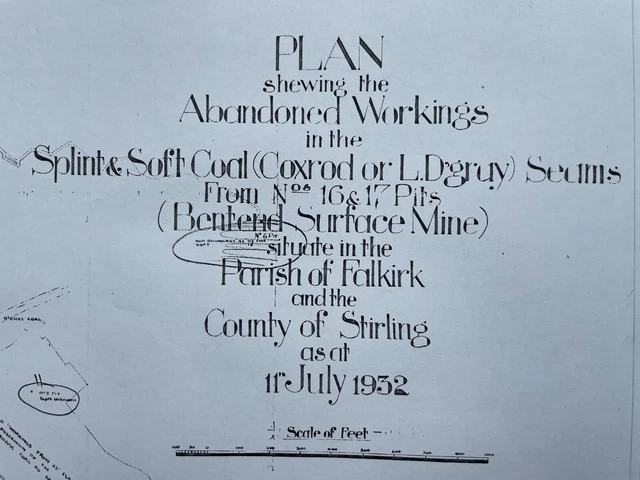 PLAN
shewing the
Abandoned Workings
in the
Splint & Soft Coal (Coxrod or L. Drgray) Seams
From Nos 16 & 17 Pits
(Bentend Surface Mine)
No 6 Pit
situate in the
Parish of Falkirk
and the
County of Stirling
as at
11th July 1932
Scale of Feet